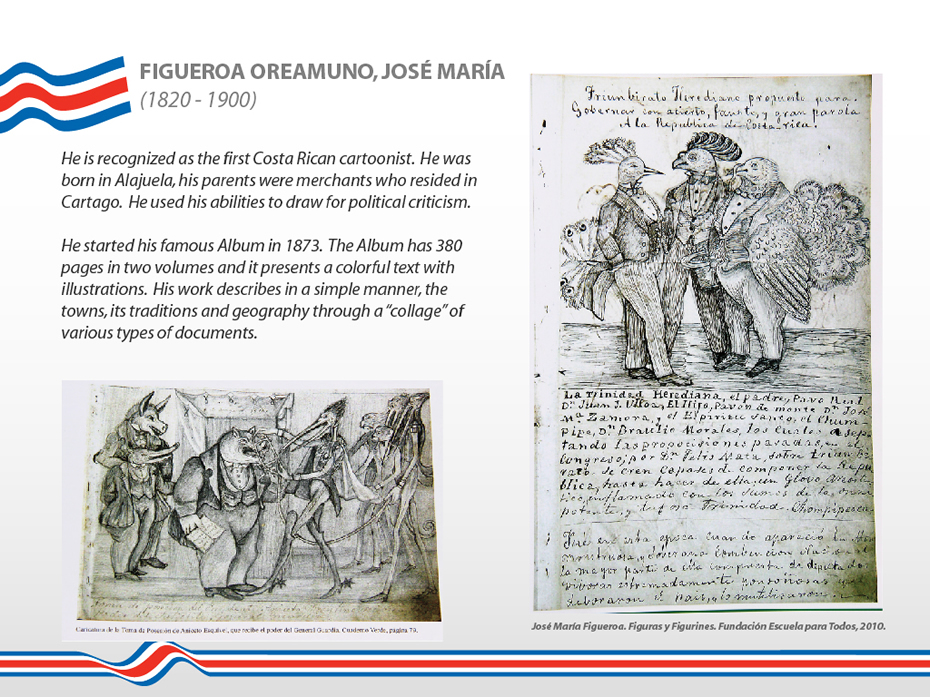 FIGUEROA OREAMUNO, JOSÉ MARÍA
(1820 - 1900)
He is recognized as the first Costa Rican cartoonist. He was
born in Alajuela, his parents were merchants who resided in
Cartago. He used his abilities to draw for political criticism.
He started his famous Album in 1873. The Album has 380
pages in two volumes and it presents a colorful text with
illustrations. His work describes in a simple manner, the
towns, its traditions and geography through a “collage” of
various types of documents.
Caricatura de la Toma de Posesión de Aniceto Esquivel, que recibe el poder del General Guardia. Cuaderno Verde, pagina 79.
Triunbirato Herediano propuesto para.
Gobernar con acierto, fausto, y gran parola
A la Republica de Costa-rica.
La Trinidad Herediana, el padre, Pavo Real
Dn. Juan J. Ulloa, El Hijo, Pavon de monte, Dn. José
Ma. Zamora, el Espiritu Santo, el Chum-
pipe, Dn. Braulio Morales, los cuales asep-
tando las proposiciones pasadas, el
Congreso, por Dn. Felis Mata, sobre triun
rato se cren Capases de componer la Repu
blica, hasta hacer de ella, un Glovo
inflamado con los Jumos de la
potente, y Trinidad. Chompipesca.
Fué en esta epoca cuando aparecio
monstruosa,
la mayor parte de ella compuesta de diputados
vivoras estremadamente ponsoñosas que
deboraron el pais, y lo mutilizaron.
José María Figueroa. Figuras y Figurines. Fundación Escuela para Todos, 2010.